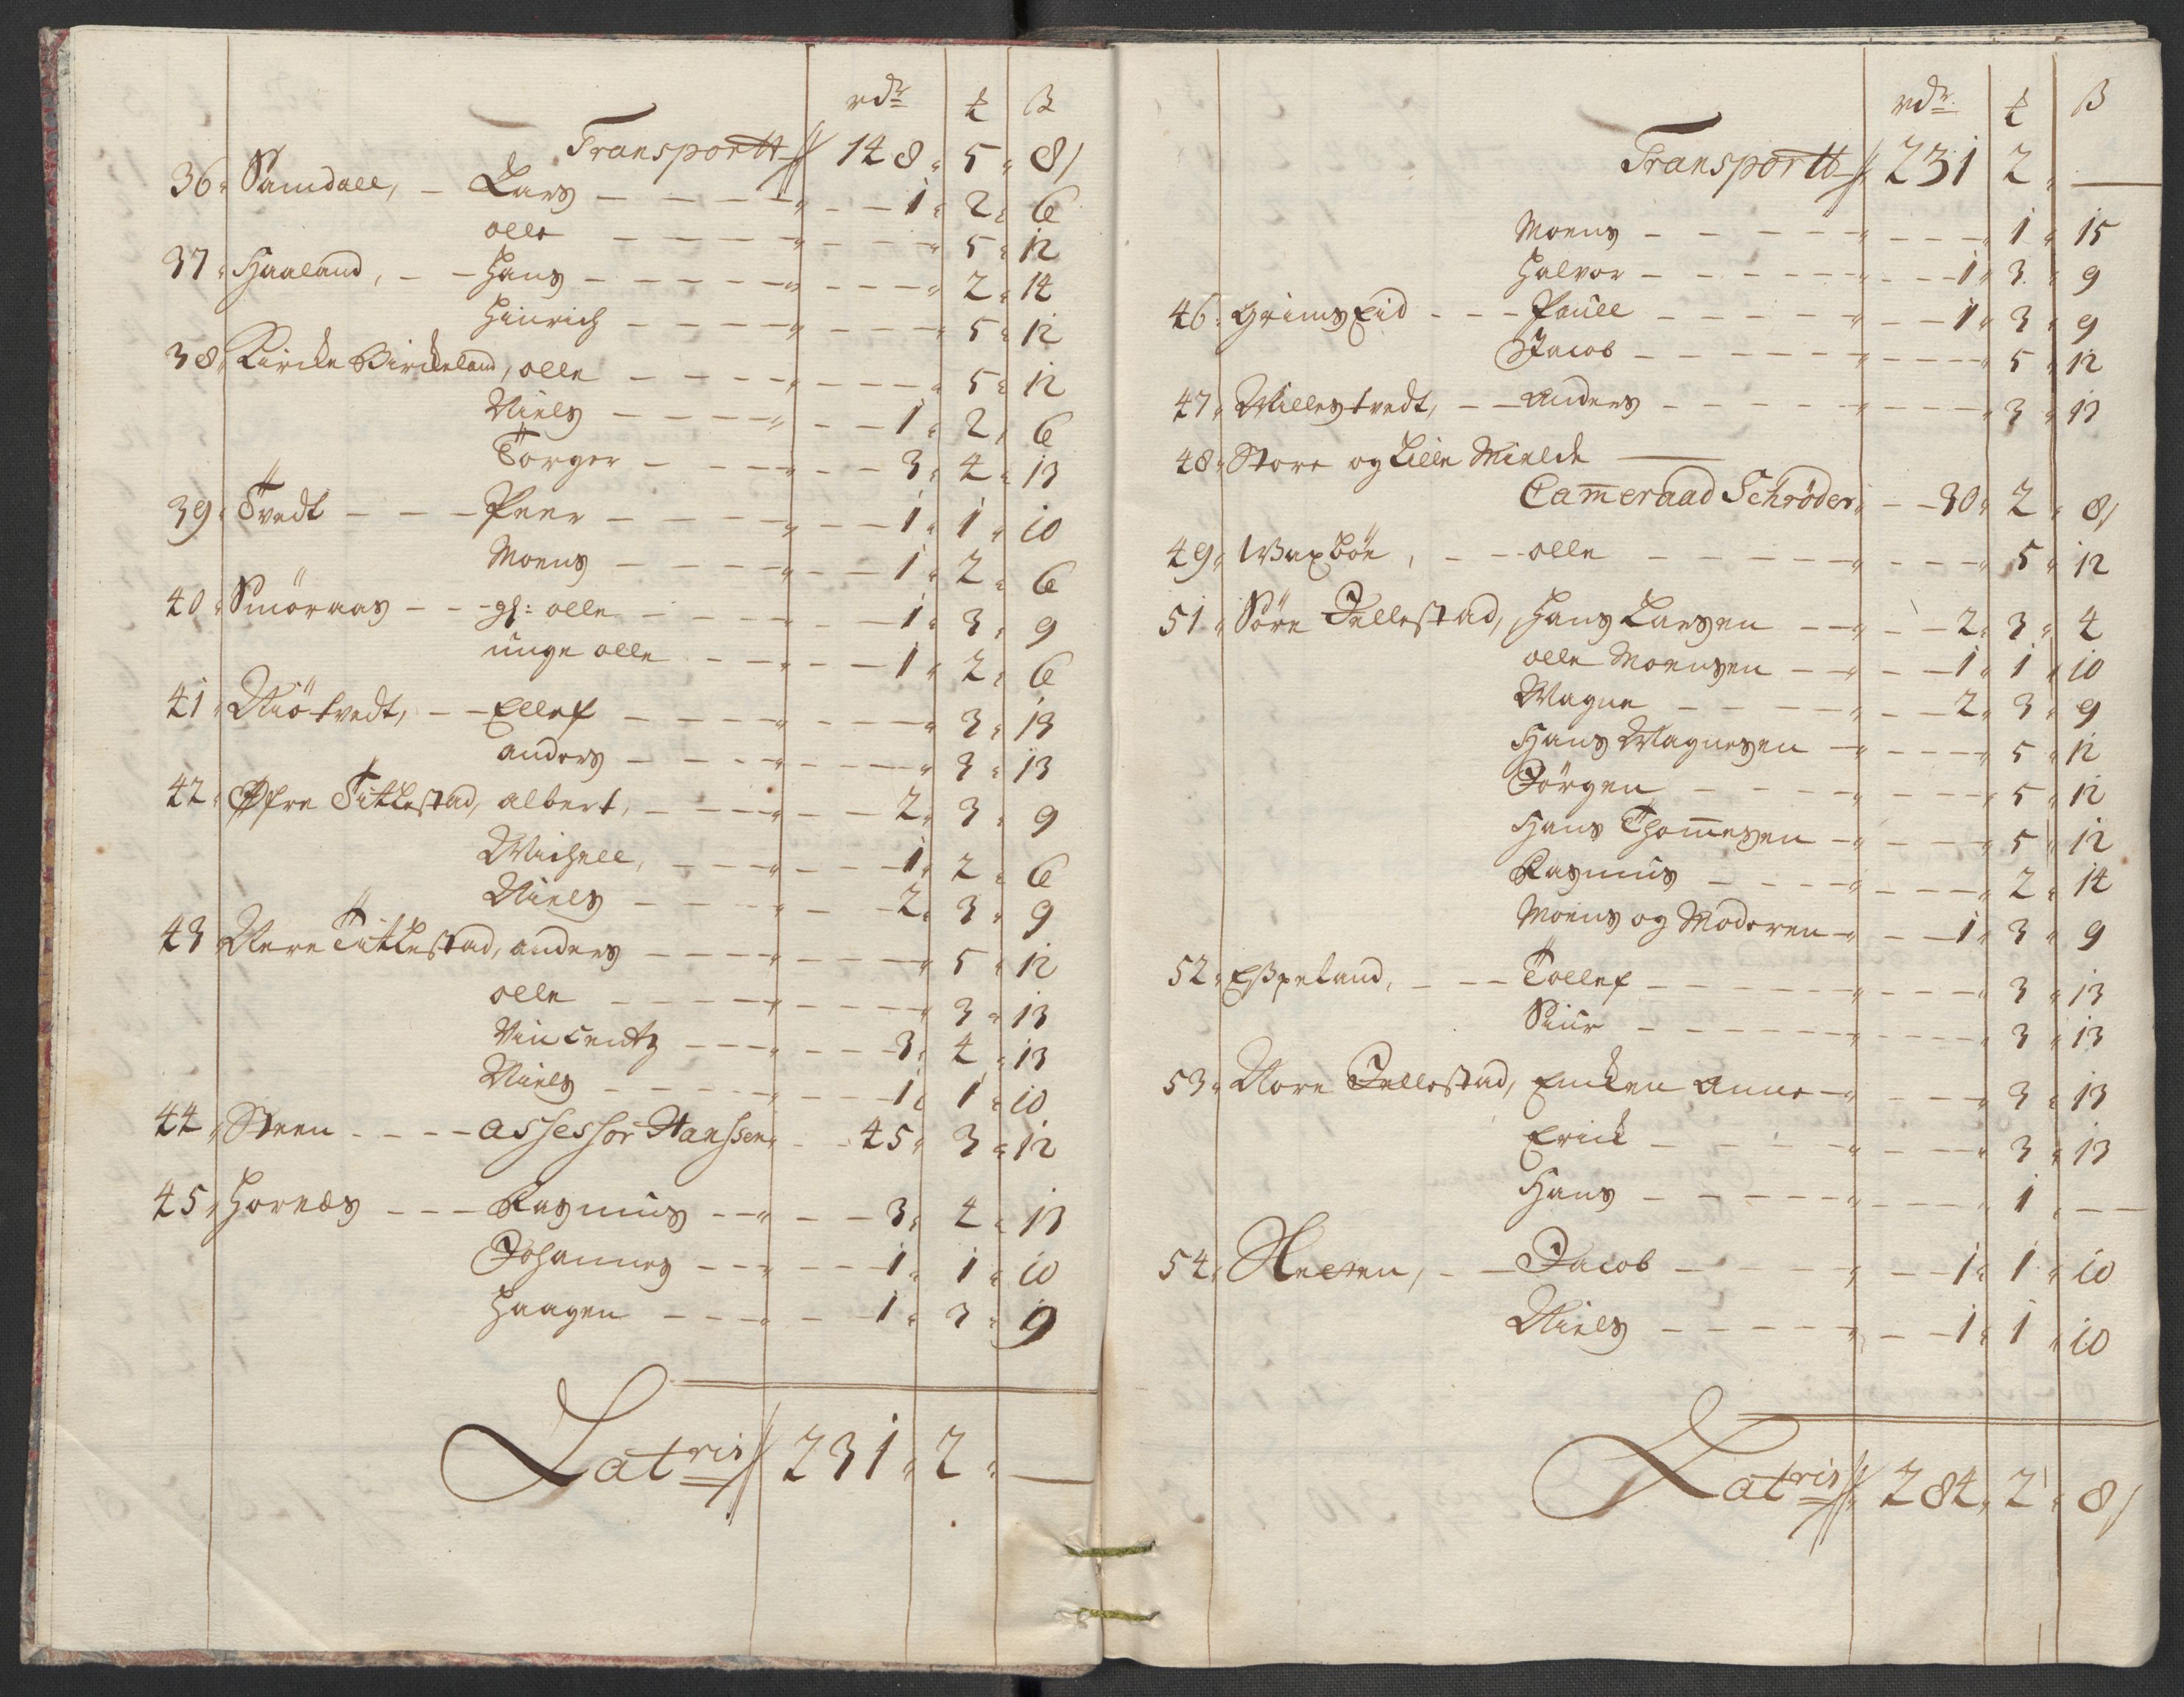 rdr ȶ ß
Transportt 148 5 8
36 Samdall, Lars 1 2 6
olle 5 12
37 Haaland, Hans 2 14
Hinrich 5 12
38 Kircke Birckeland, olle 5 12
Niels 1 2 6
Torger 3 4 13
39 Tvedt Peer 1 1 10
Moens 1 2 6
40 Smöraas gl: olle 1 3 9
unge olle 1 2 6
41 Niötvedt, Ellef 3 13
anders 3 13
42 Øfre Titlestad, albert, 2 3 9
Michell, 1 2 6
Niels 2 3 9
43 Nere Titlestad, anders 5 12
olle 3 13
Vincentz 3 4 13
Niels 1 1 10
44 Steen assessor Hanssen 45 3 12
45 Hornæs Rasmus 3 4 13
Johannes 1 1 10
Haagen 1 3 9
Latris 231 2 —
rdr ȶ ß
Transportt 231 2 —
Moens 1 15
Halvor 1 3 9
46 Grims Eid Pouell 1 3 9
Jacob 5 12
47 Millestvedt, anders 3 13
48 Store og Lille Mielde
Cammeraad Schrøder 30 2 8
49 Waxböe, olle 5 12
51 Söre Jellestad, Hans Larsen 2 3 4
olle Moensen 1 1 10
Magne 2 3 9
Hans Magnesen 5 12
Jörgen 5 12
Hans Thommesen 5 12
Rasmus 2 14
Moens og Moderen 1 3 9
52 Espeland, Tollef 3 13
Siur 3 13
53 Nore Jellestad, Encken anne 3 13
Erick 3 13
Hans 1 —
54 Jacob 1 1 10
Niels 1 1 10
Latris 284 2 8